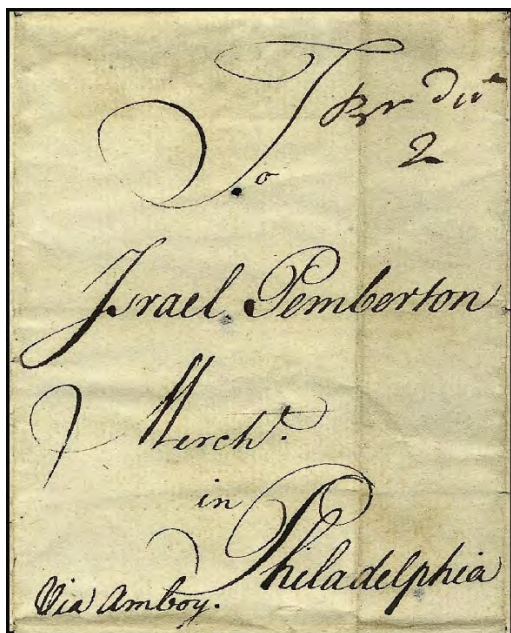 2
To
Israel Pemberton
Mercht.
in
Philadelphia
Via Amboy.